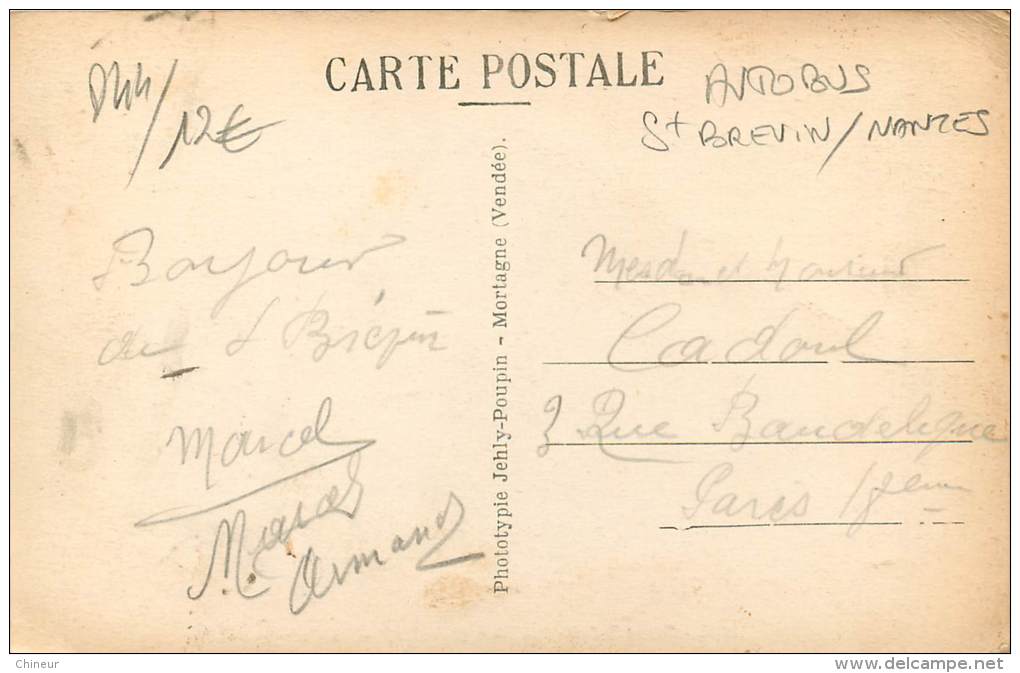 CARTE POSTALE
12€
AUTOBUS
St BREVIN / NANTES
Bonjour
de St Brévin
Marcel
Armand
Phototypie Jehly-Poupin - Mortagne (Vendée).
et Monsieur
Cadoul
3 Rue Baudelique
Paris 18ème
Chineur
www.delcampe.net